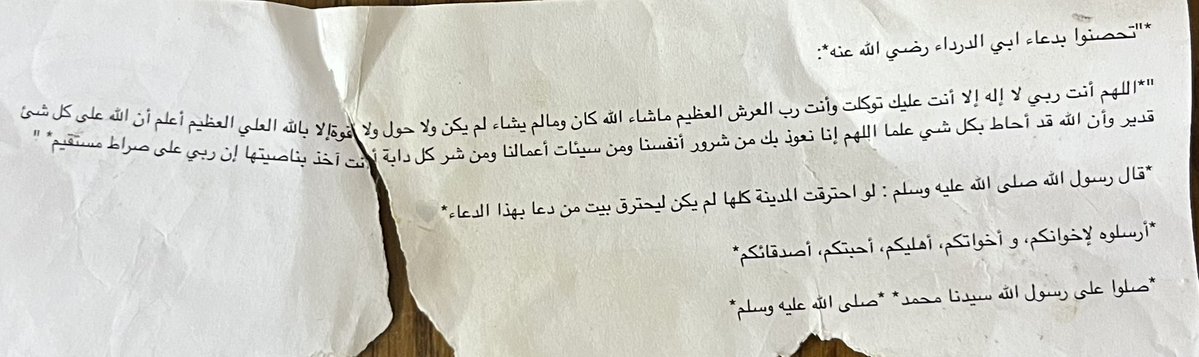 *"تحصنوا بدعاء ابي الدرداء رضي الله عنه*:
"*اللهم أنت ربي لا إله إلا أنت عليك توكلت وأنت رب العرش العظيم ماشاء الله كان ومالم يشاء لم يكن ولا حول ولا قوةإلا بالله العلي العظيم أعلم أن الله على كل شئ
قدير وأن الله قد أحاط بكل شي علما اللهم إنا نعوذ بك من شرور أنفسنا ومن سيئات أعمالنا ومن شر كل دابة أنت آخذ بناصيتها إن ربي على صراط مستقيم* "
*قال رسول الله صلى الله عليه وسلم : لو احترقت المدينة كلها لم يكن ليحترق بيت من دعا بهذا الدعاء*
*أرسلوه لإخوانكم، و أخواتكم، أهليكم، أحبتكم، أصدقائكم*
*صلوا على رسول الله سيدنا محمد* *صلى الله عليه وسلم*